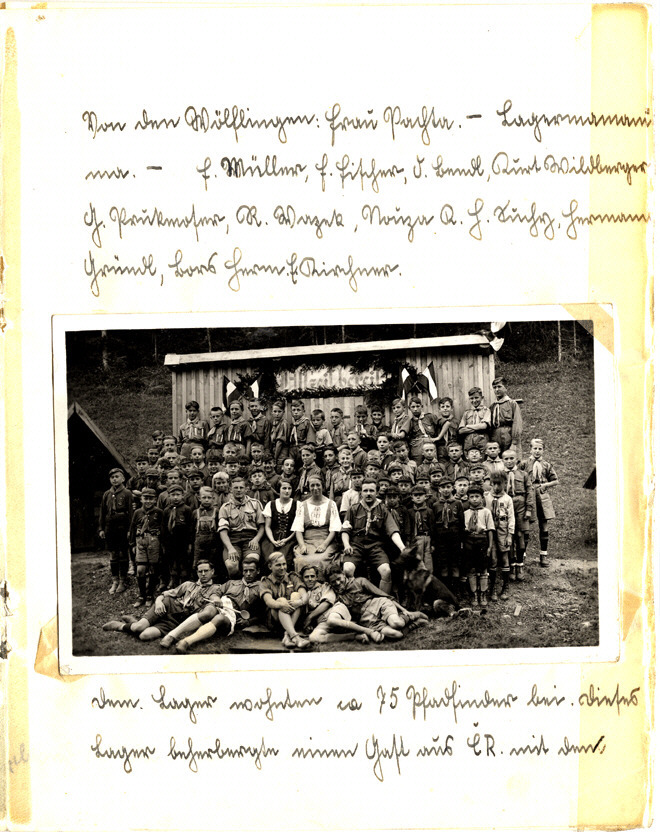 Von den Wölflingen: Frau Pachta. – Lagermamam
ma. – F. Müller, F. Fischer, J. Bendl, Kurt Wildberger
G. Prukmoser, R. Wazek, Nouza K. H. Suchy, Hermann
Gründl, Bors Herm. E. Kirchner.
Dem. Lager wohnten ca 75 Pfadfinder bei. Dieses
Lager beherbergte einen Gast aus ČR. mit dem